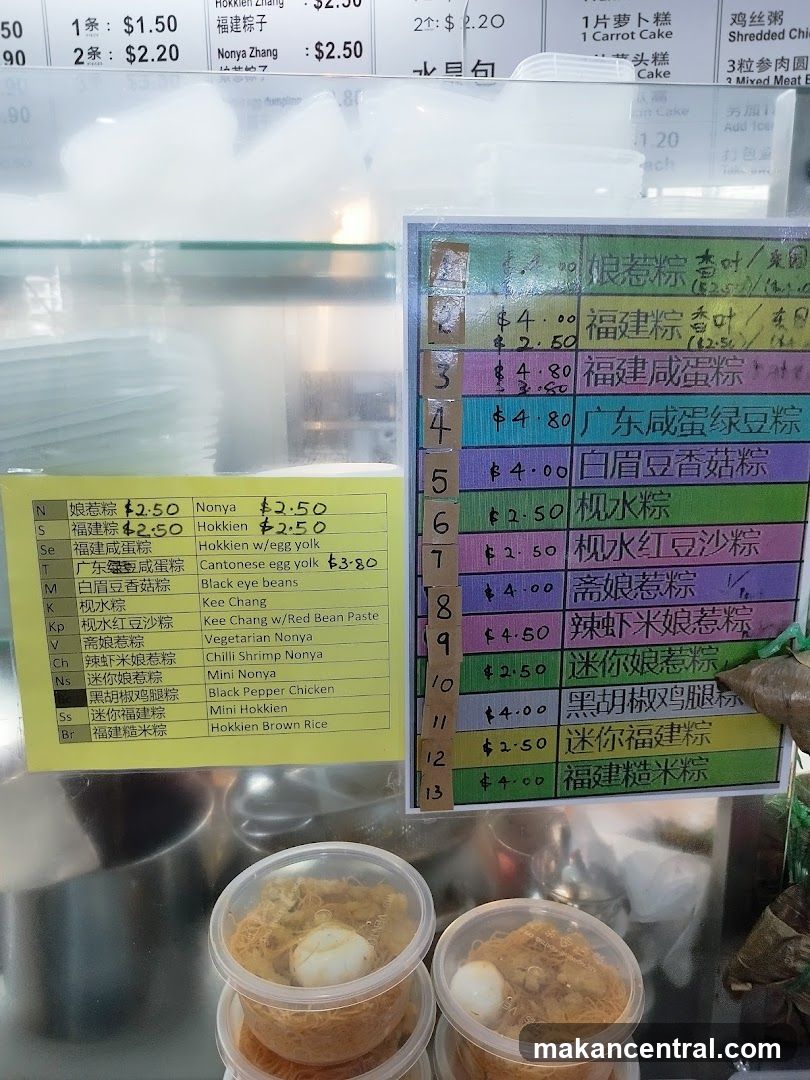 1条 : $1.50
2条 : $2.20
Hokkien Zhang
福建粽子
Nonya Zhang : $2.50
2个: $2.20
水晶包
1片萝卜糕
1 Carrot Cake
鸡丝粥
3粒参肉圆
1.20
娘惹粽 香叶/
2 $4.00 福建粽 香叶/
$2.50
3 $4.80 福建咸蛋粽
3.80
4 $4.80 广东咸蛋绿豆粽
5 $4.00 白眉豆香菇粽
6 $2.50 枧水粽
7 $2.50 枧水红豆沙粽
8 $4.00 斋娘惹粽
9 $4.50 辣虾米娘惹粽
10 $2.50 迷你娘惹粽
11 $4.00 黑胡椒鸡腿粽
12 $2.50 迷你福建粽
13 $4.00 福建糙米粽
N 娘惹粽 $2.50 Nonya $2.50
S 福建粽 $2.50 Hokkien $2.50
Se 福建咸蛋粽 Hokkien w/egg yolk
T 广东绿豆咸蛋粽 Cantonese egg yolk $3.80
M 白眉豆香菇粽 Black eye beans
K 枧水粽 Kee Chang
Kp 枧水红豆沙粽 Kee Chang w/Red Bean Paste
V 斋娘惹粽 Vegetarian Nonya
Ch 辣虾米娘惹粽 Chilli Shrimp Nonya
Ns 迷你娘惹粽 Mini Nonya
黑胡椒鸡腿粽 Black Pepper Chicken
Ss 迷你福建粽 Mini Hokkien
Br 福建糙米粽 Hokkien Brown Rice
makancentral.com